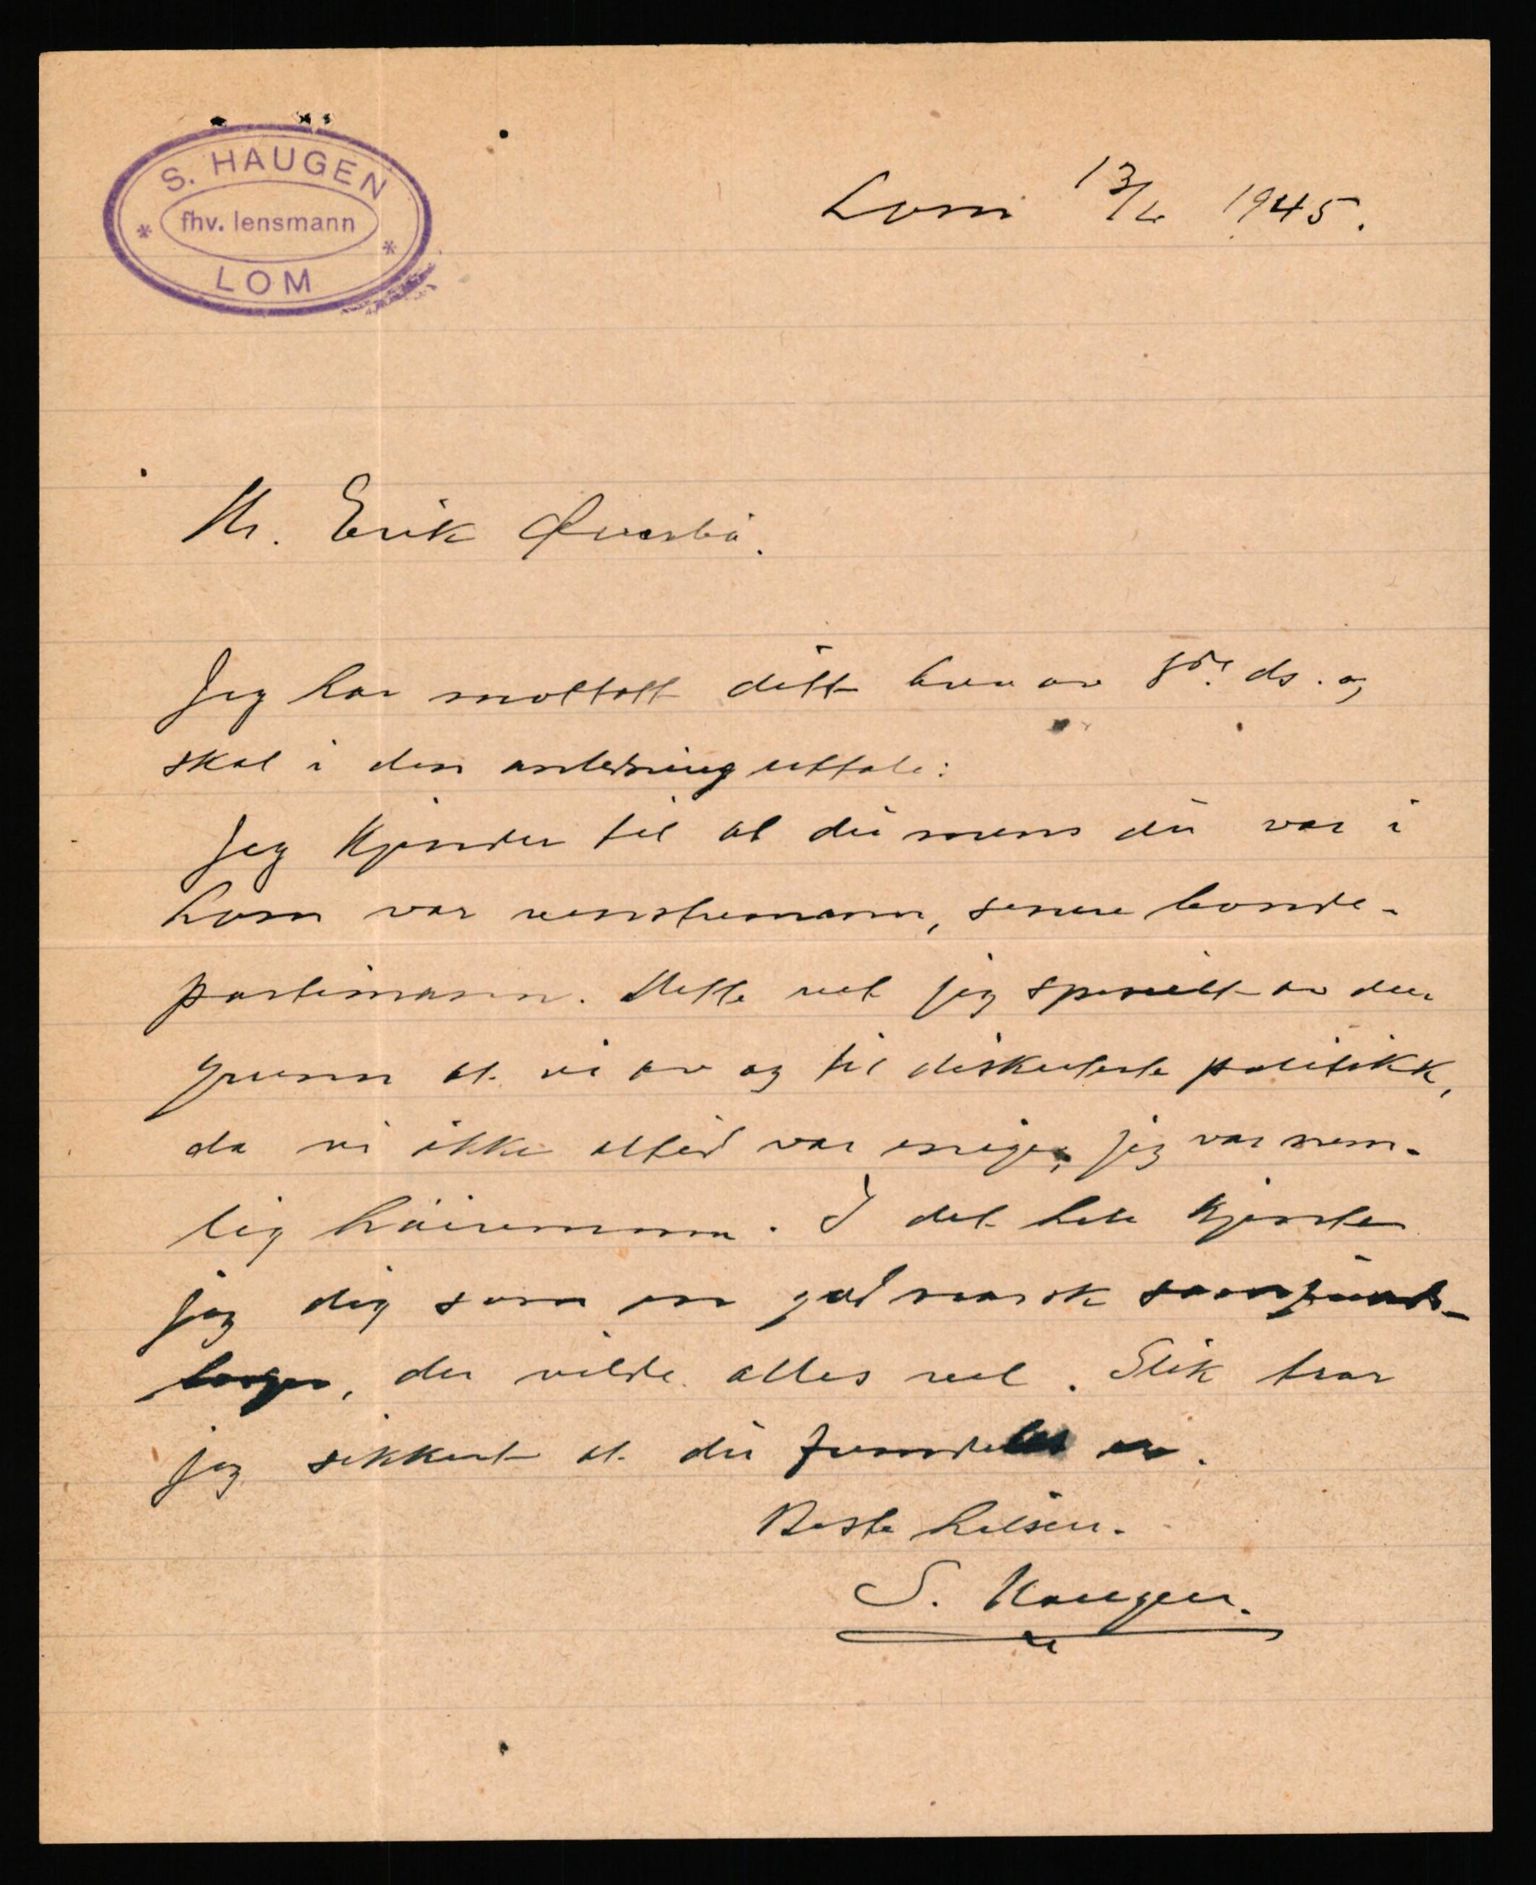 S. HAUGEN
fhv. lensmann
LOM
Lom 13/6 1945.
Hr. Erik Øverbö.
Jeg har mottatt ditt brev av 8de ds. og
skal i den anledning uttale:
Jeg kjender til at du mens du var i
Lom var venstremann, senere bonde-
partimann. Dette vet jeg spesielt av den
grunn at vi av og til diskuterte politikk,
da vi ikke altid var enige, jeg var nem-
lig höiremann. I det hele kjente
jeg dig som en god norsk samfunds-
borger, der vilde alles vel. Slik tror
jeg sikkert at du fremdeles er.
Beste hilsen.
S. Haugen.